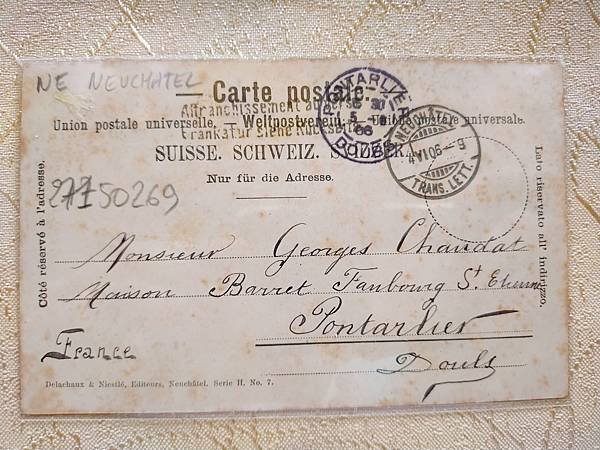 NE NEUCHATEL
— Carte postale. —
Affranchissement au verso
Union postale universelle. — Weltpostverein. — Unione postale universale.
Frankatur siehe Rückseite
SUISSE. SCHWEIZ. SVIZZERA.
Nur für die Adresse.
PONTARLIER
DOUBS
NEUCHATEL
TRANS. LETT.
Côté réservé à l'adresse.
Lato riservato all' indirizzo.
50269
Monsieur Georges Chaudat
Maison Barret Faubourg St Etienne
Pontarlier
France
Doubs
Delachaux & Niestlé, Editeurs, Neuchâtel. Serie H. No. 7.